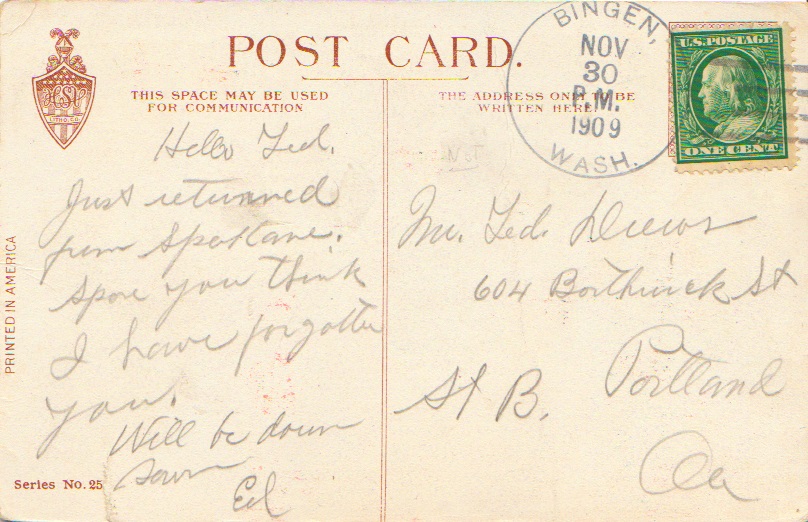 POST CARD.
THIS SPACE MAY BE USED
FOR COMMUNICATION
THE ADDRESS ONLY TO BE
WRITTEN HERE.
BINGEN,
NOV
30
P.M.
1909
WASH.
U.S. POSTAGE
ONE CENT
HSV
LITHO. CO.
Hello Ted.
Just returned
from Spokane.
spose you think
I have forgotten
you.
Will be down
soon
Ed
Not
Mr. Ted. Drews
604 Borthwick St
St B. Portland
PRINTED IN AMERICA
Series No. 25